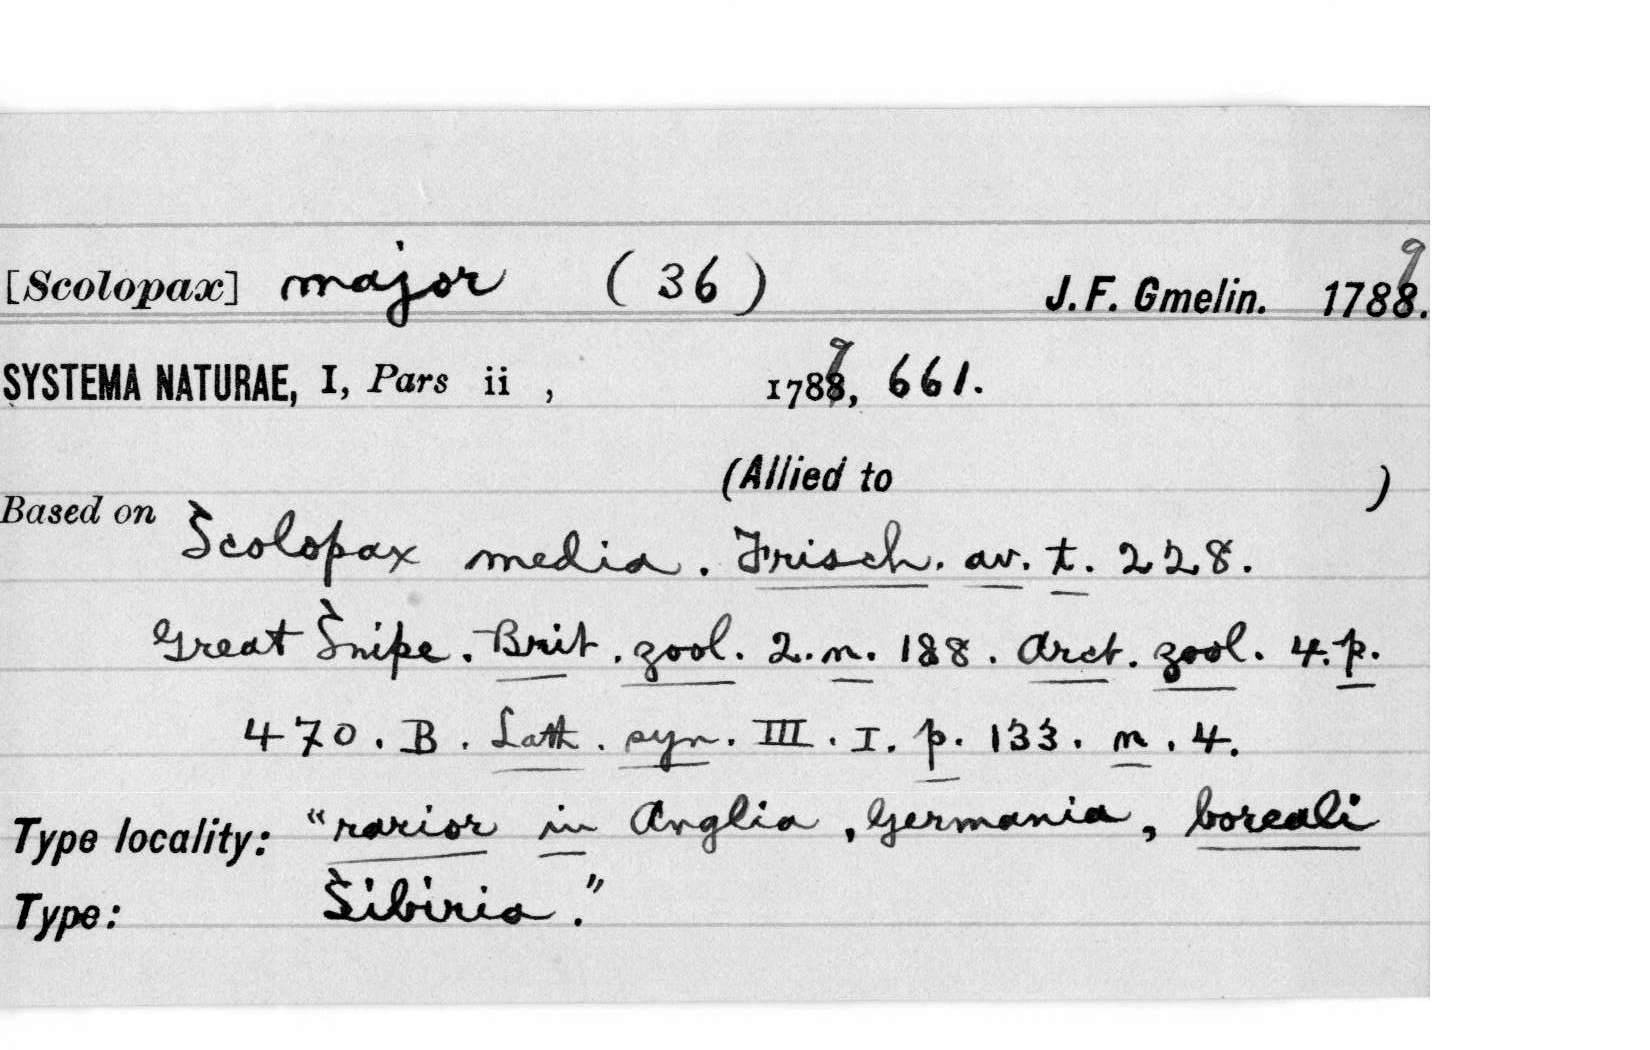 [Scolopax] major (36) J. F. Gmelin. 1788. 9
SYSTEMA NATURAE, I, Pars ii , 1788, 9 661.
(Allied to )
Based on Scolopax media. Frisch. av. t. 228.
Great Snipe. Brit. zool. 2. n. 188. Arct. zool. 4. p.
470. B. Lath. syn. III. I. p. 133. n. 4.
Type locality: "rarior in Anglia, Germania, boreali
Type: Sibiria."